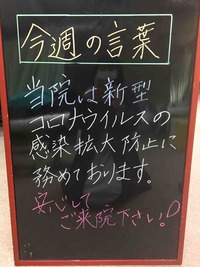 今週の言葉
当院は新型
コロナウイルスの
感染拡大防止に
務めております。
安心して
ご来院下さい!